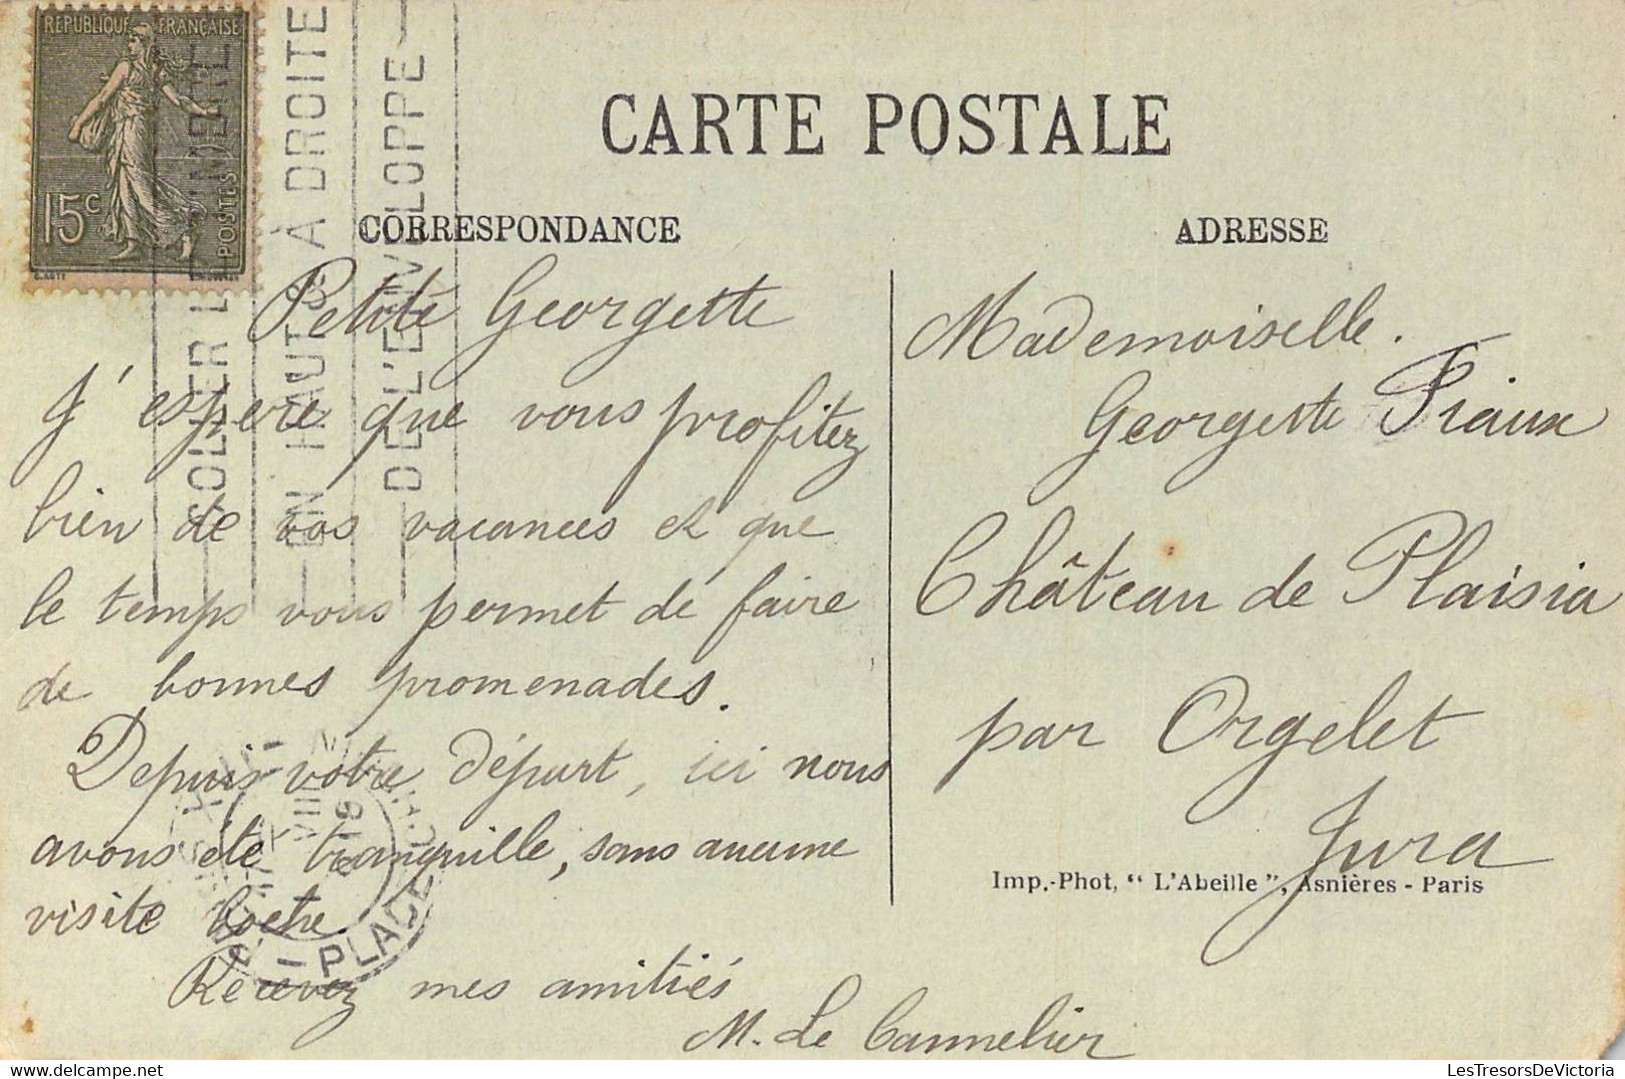 REPUBLIQUE FRANÇAISE
15c
POSTES
COLLER LE TIMBRE
EN HAUT & À DROITE
DE L'ENVELOPPE
CARTE POSTALE
CORRESPONDANCE
Petite Georgette
J'espere que vous profitez
bien de vos vacances et que
le temps vous permet de faire
de bonnes promenades.
Depuis votre départ, ici nous
avons été tranquille, sans aucune
visite boche.
Recevez mes amitiés
M. Le Cannelier
PLACE
VIII
ADRESSE
Mademoiselle.
Georgette Piaux
Château de Plaisia
par Orgelet
Jura
Imp.-Phot, “ L'Abeille ”, Asnières - Paris
LesTresorsDeVictoria